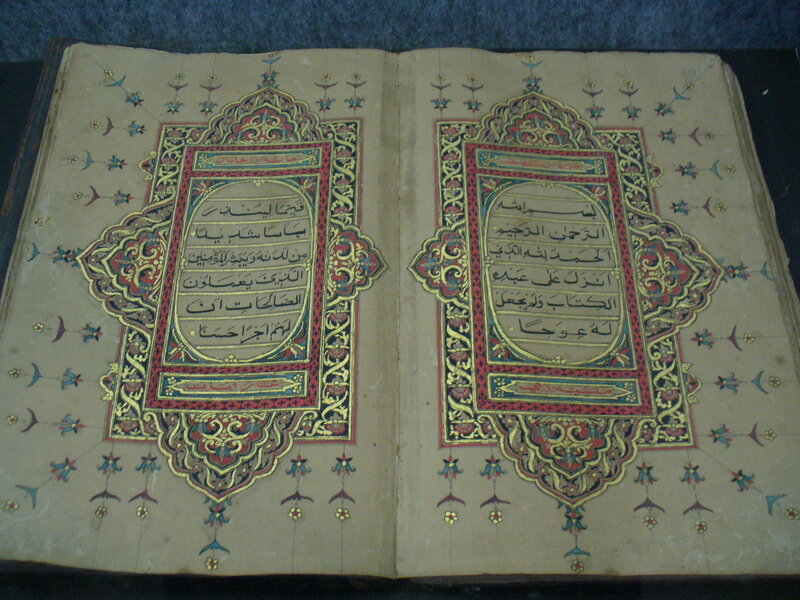 بسم الله
الرحمن الرحيم
الحمد لله الذي
انزل على عبده
الكتاب ولم يجعل
له عوجا
قيما لينذر
باسا شديدا
من لدنه ويبشر المؤمنين
الذين يعملون
الصالحات ان
لهم اجرا حسنا